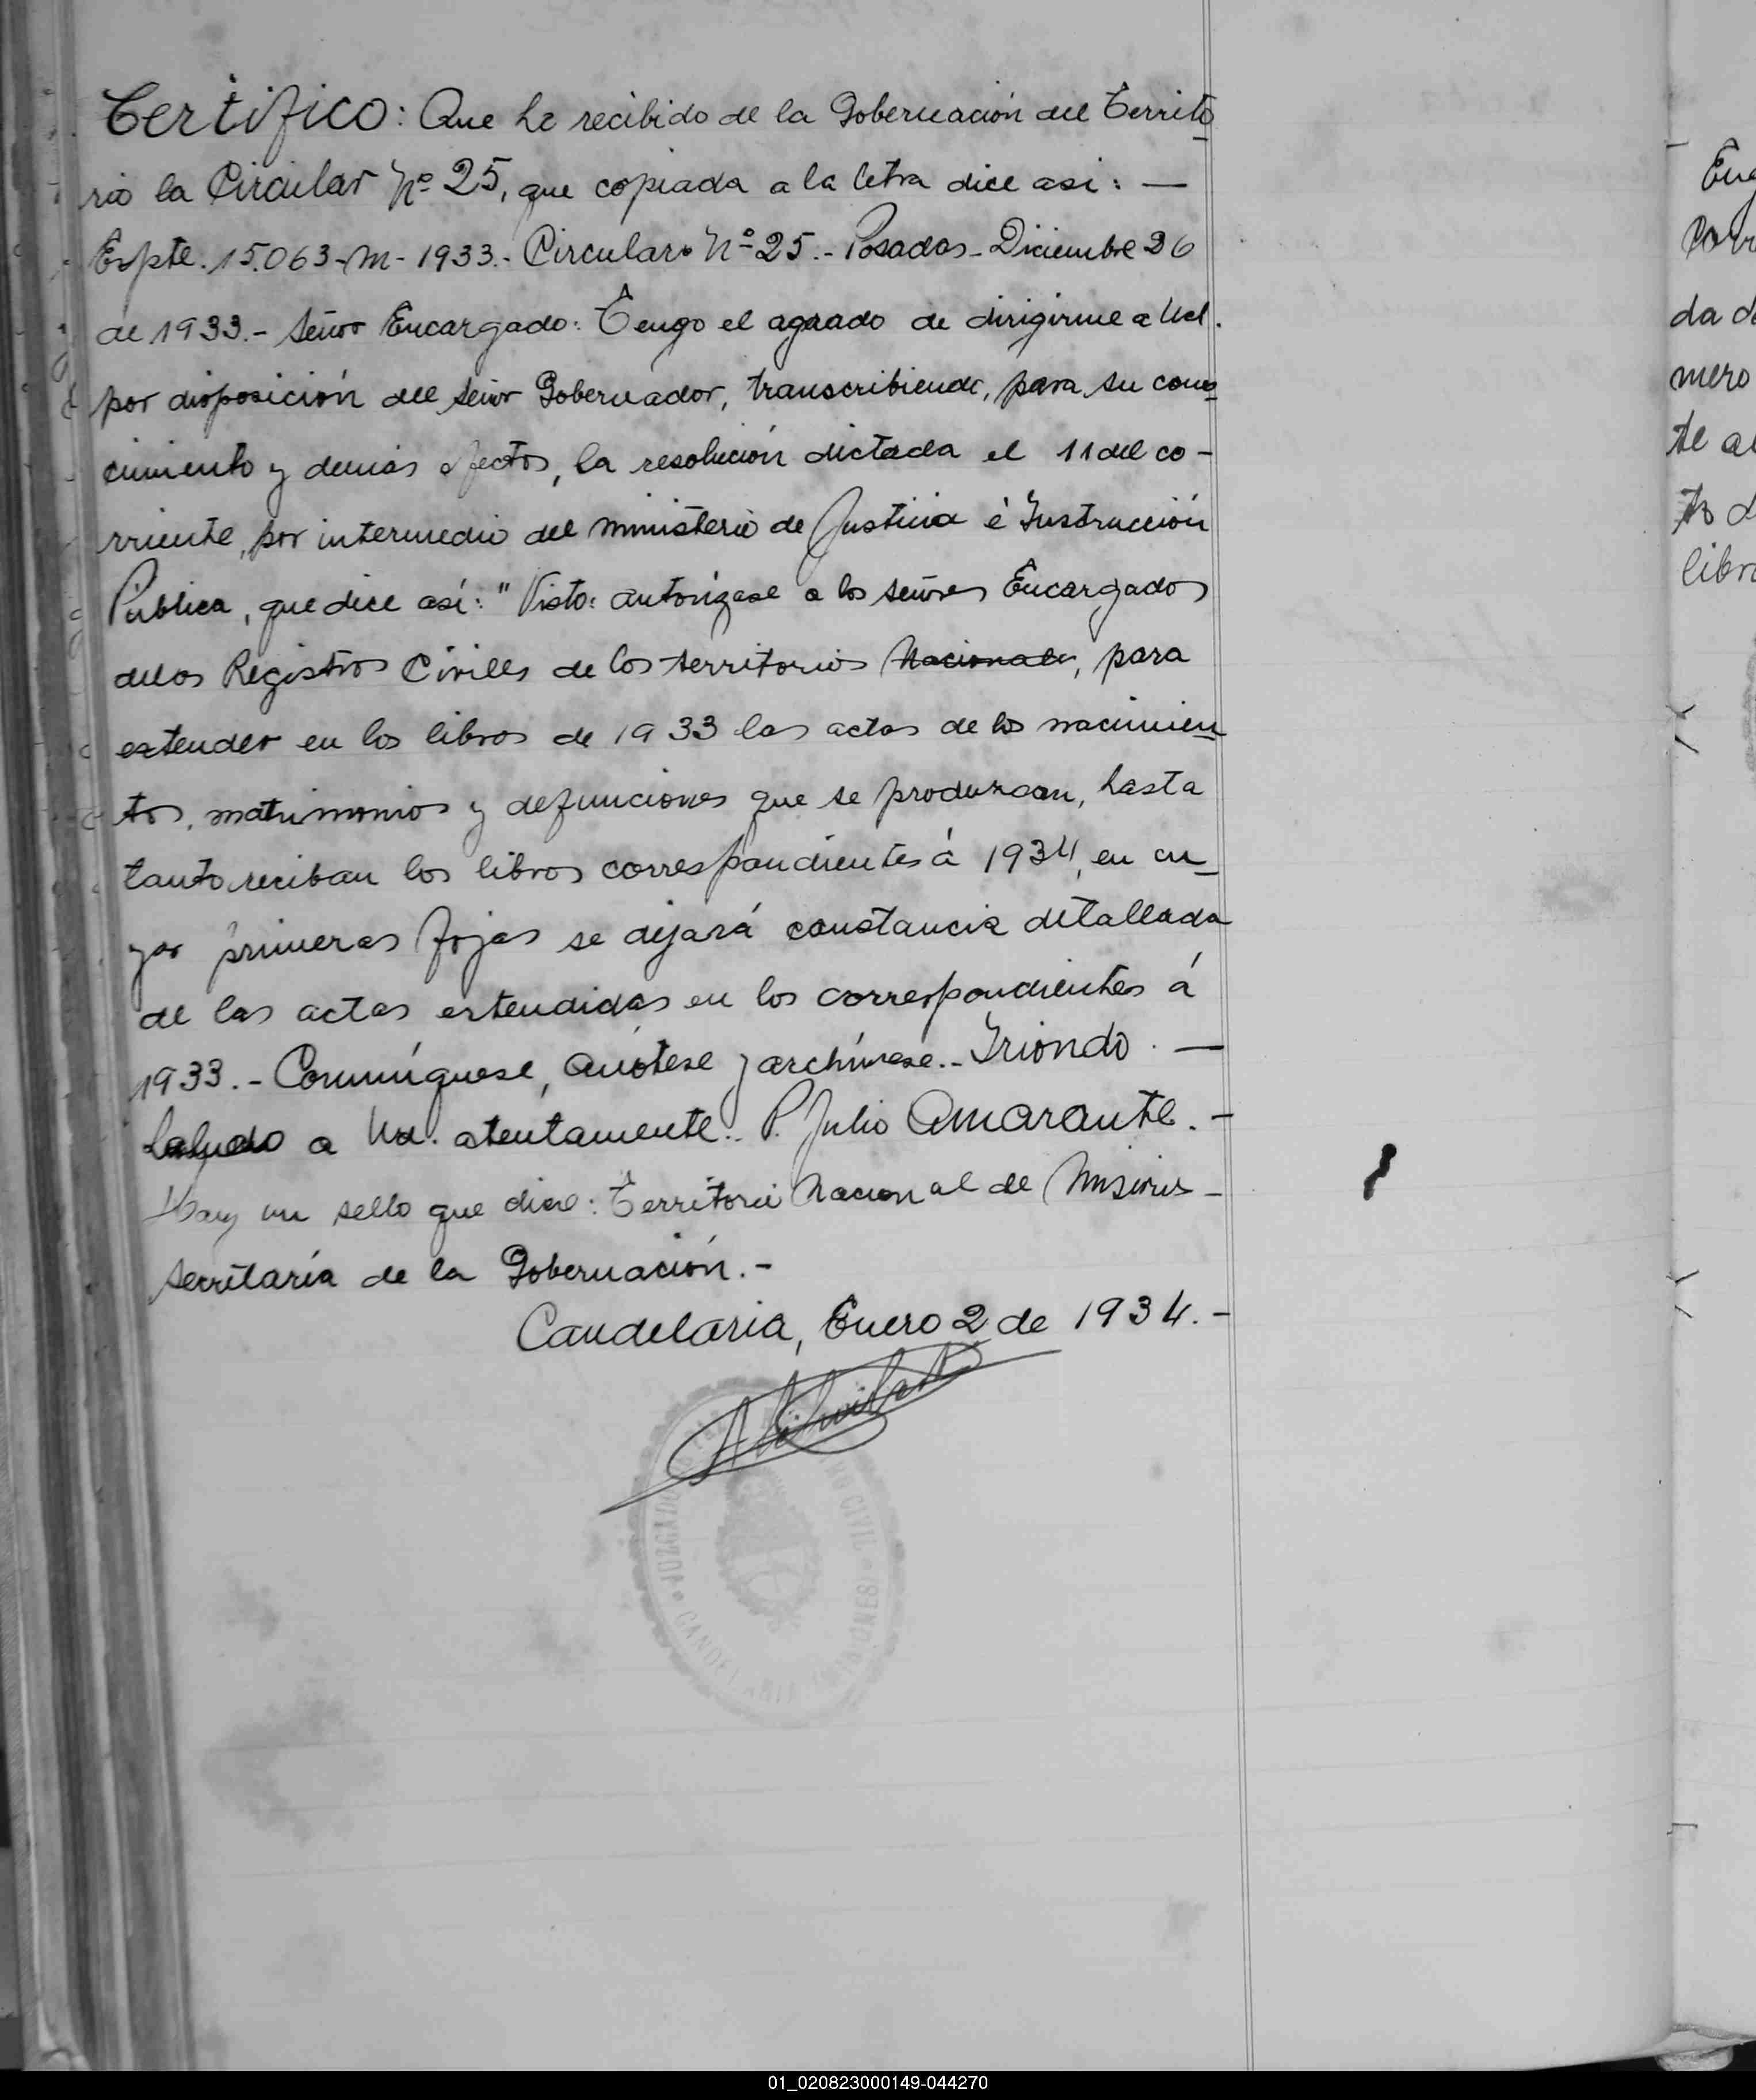 Certifico: Que he recibido de la Gobernación del Territo
rio la Circular Nº 25, que copiada a la letra dice asi: —
Expte. 15.063-M-1933.- Circular Nº 25.- Posadas-Diciembre 26
de 1933.- Señor Encargado: Tengo el agrado de dirigirme a Ud.
por disposición del señor Gobernador, transcribiendo, para su cono
cimiento y demás efectos, la resolución dictada el 11 del co-
rriente, por intermedio del Ministerio de Justicia é Instrucción
Publica, que dice asi: "Visto: autorízase a los señores Encargados
delos Registros Civiles de los territorios Nacionales, para
extender en los libros de 1933 las actas de los nacimien
tos, matrimonios y defunciones que se produzcan, hasta
tanto reciban los libros correspondientes á 1934, en cu
yas primeras fojas se dejará constancia detallada
de las actas extendidas en los correspondientes á
1933.- Comuníquese, anótese y archívese.- Iriondo. —
Saludo a Ud. atentamente.- P. Julio Amarante.-
Hay un sello que dice: Territorio Nacional de Misiones-
Secretaría de la Gobernación.-
Candelaria, Enero 2 de 1934.-
JUZGADO
CIVIL
01_020823000149-044270